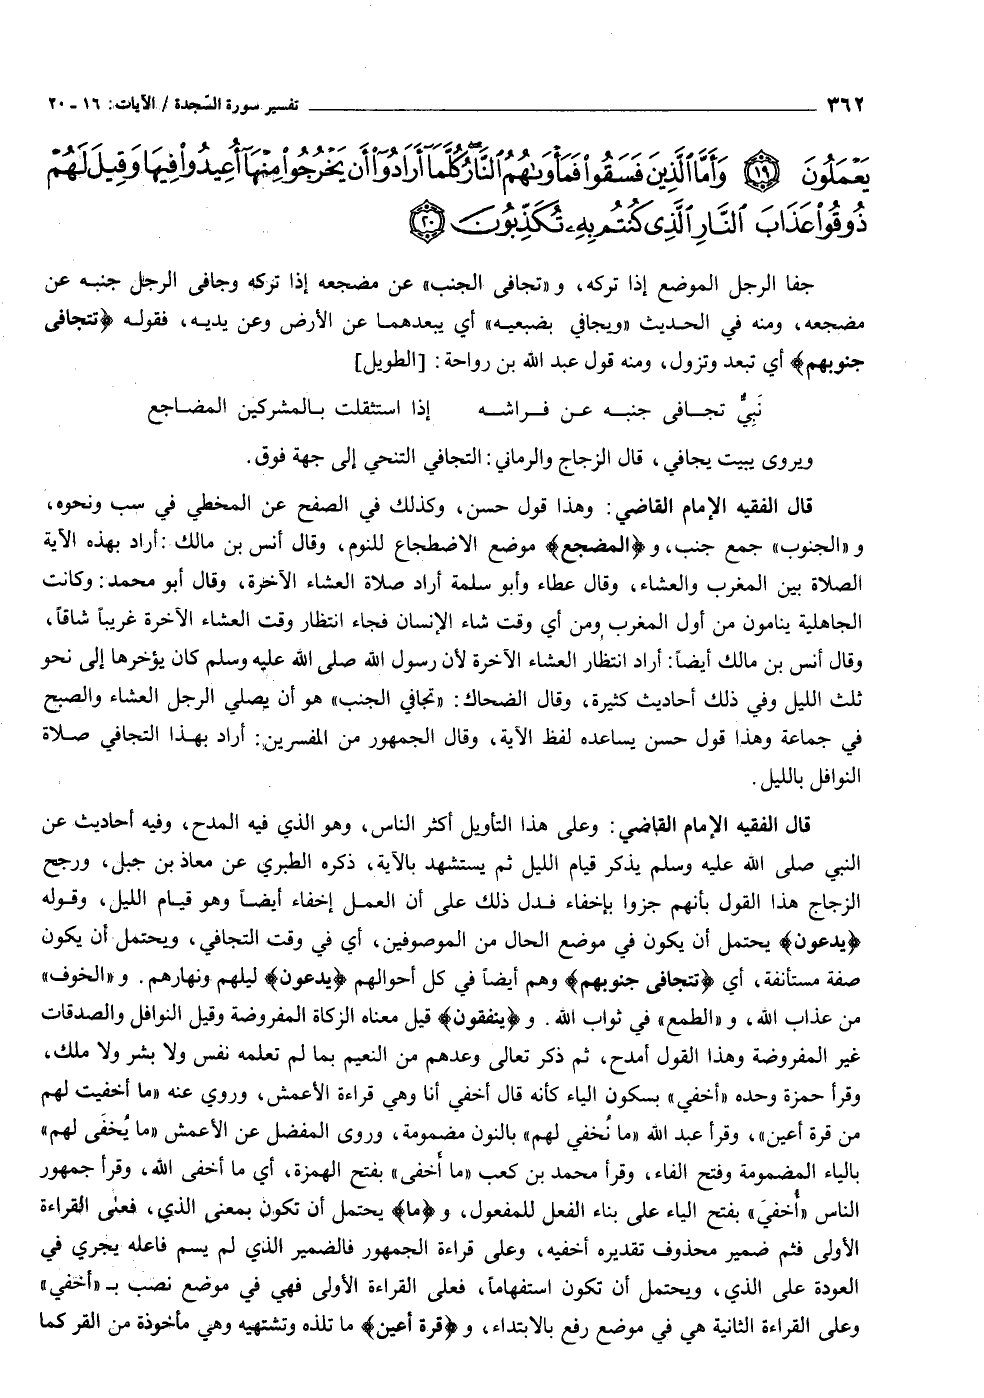 ٣٦٢ ــــــ تفسير سورة السّجدة / الآيات: ١٦ ـ ٢٠
يَعْمَلُونَ ﴿١٩﴾ وَأَمَّا ٱلَّذِينَ فَسَقُوا۟ فَمَأْوَىٰهُمُ ٱلنَّارُ كُلَّمَآ أَرَادُوٓا۟ أَن يَخْرُجُوا۟ مِنْهَآ أُعِيدُوا۟ فِيهَا وَقِيلَ لَهُمْ
ذُوقُوا۟ عَذَابَ ٱلنَّارِ ٱلَّذِى كُنتُم بِهِۦ تُكَذِّبُونَ ﴿٢٠﴾
جفا الرجل الموضع إذا تركه، و «تجافى الجنب» عن مضجعه إذا تركه وجافى الرجل جنبه عن
مضجعه، ومنه في الحديث «ويجافي بضبعيه» أي يبعدهما عن الأرض وعن يديه، فقوله ﴿تتجافى
جنوبهم﴾ أي تبعد وتزول، ومنه قول عبد الله بن رواحة: [الطويل]
نَبِيٌّ تجافى جنبه عن فراشه إذا استثقلت بالمشركين المضاجع
ويروى يبيت يجافي، قال الزجاج والرماني: التجافي التنحي إلى جهة فوق.
قال الفقيه الإمام القاضي: وهذا قول حسن، وكذلك في الصفح عن المخطي في سب ونحوه،
و «الجنوب» جمع جنب، و ﴿المضجع﴾ موضع الاضطجاع للنوم، وقال أنس بن مالك: أراد بهذه الآية
الصلاة بين المغرب والعشاء، وقال عطاء وأبو سلمة أراد صلاة العشاء الآخرة، وقال أبو محمد: وكانت
الجاهلية ينامون من أول المغرب ومن أي وقت شاء الإنسان فجاء انتظار وقت العشاء الآخرة غريباً شاقاً،
وقال أنس بن مالك أيضاً: أراد انتظار العشاء الآخرة لأن رسول الله صلى الله عليه وسلم كان يؤخرها إلى نحو
ثلث الليل وفي ذلك أحاديث كثيرة، وقال الضحاك: «تجافي الجنب» هو أن يصلي الرجل العشاء والصبح
في جماعة وهذا قول حسن يساعده لفظ الآية، وقال الجمهور من المفسرين: أراد بهذا التجافي صلاة
النوافل بالليل.
قال الفقيه الإمام القاضي: وعلى هذا التأويل أكثر الناس، وهو الذي فيه المدح، وفيه أحاديث عن
النبي صلى الله عليه وسلم يذكر قيام الليل ثم يستشهد بالآية، ذكره الطبري عن معاذ بن جبل، ورجح
الزجاج هذا القول بأنهم جزوا بإخفاء فدل ذلك على أن العمل إخفاء أيضاً وهو قيام الليل، وقوله
﴿يدعون﴾ يحتمل أن يكون في موضع الحال من الموصوفين، أي في وقت التجافي، ويحتمل أن يكون
صفة مستأنفة، أي ﴿تتجافى جنوبهم﴾ وهم أيضاً في كل أحوالهم ﴿يدعون﴾ ليلهم ونهارهم. و «الخوف»
من عذاب الله، و «الطمع» في ثواب الله. و ﴿ينفقون﴾ قيل معناه الزكاة المفروضة وقيل النوافل والصدقات
غير المفروضة وهذا القول أمدح، ثم ذكر تعالى وعدهم من النعيم بما لم تعلمه نفس ولا بشر ولا ملك،
وقرأ حمزة وحده «أخفي» بسكون الياء كأنه قال أخفي أنا وهي قراءة الأعمش، وروي عنه «ما أخفيت لهم
من قرة أعين»، وقرأ عبد الله «ما نُخفي لهم» بالنون مضمومة، وروى المفضل عن الأعمش «ما يُخفَى لهم»
بالياء المضمومة وفتح الفاء، وقرأ محمد بن كعب «ما أَخفى» بفتح الهمزة، أي ما أخفى الله، وقرأ جمهور
الناس «أُخفيَ» بفتح الياء على بناء الفعل للمفعول، و ﴿ما﴾ يحتمل أن تكون بمعنى الذي، فعلى القراءة
الأولى فثم ضمير محذوف تقديره أخفيه، وعلى قراءة الجمهور فالضمير الذي لم يسم فاعله يجري في
العودة على الذي، ويحتمل أن تكون استفهاماً، فعلى القراءة الأولى فهي في موضع نصب بـ «أخفي»
وعلى القراءة الثانية هي في موضع رفع بالابتداء، و ﴿قرة أعين﴾ ما تلذه وتشتهيه وهي مأخوذة من القر كما